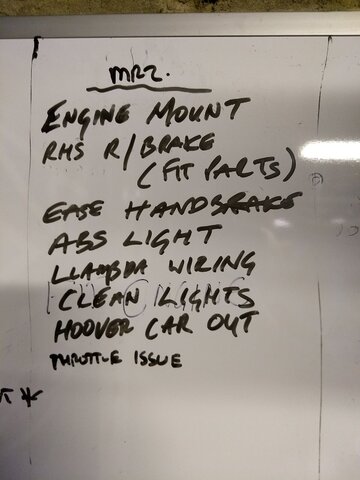 MR2.
ENGINE MOUNT
RHS R/BRAKE
(FIT PARTS)
EASE HANDBRAKE
ABS LIGHT
LLAMBDA WIRING
CLEAN LIGHTS
HOOVER CAR OUT
THROTTLE ISSUE